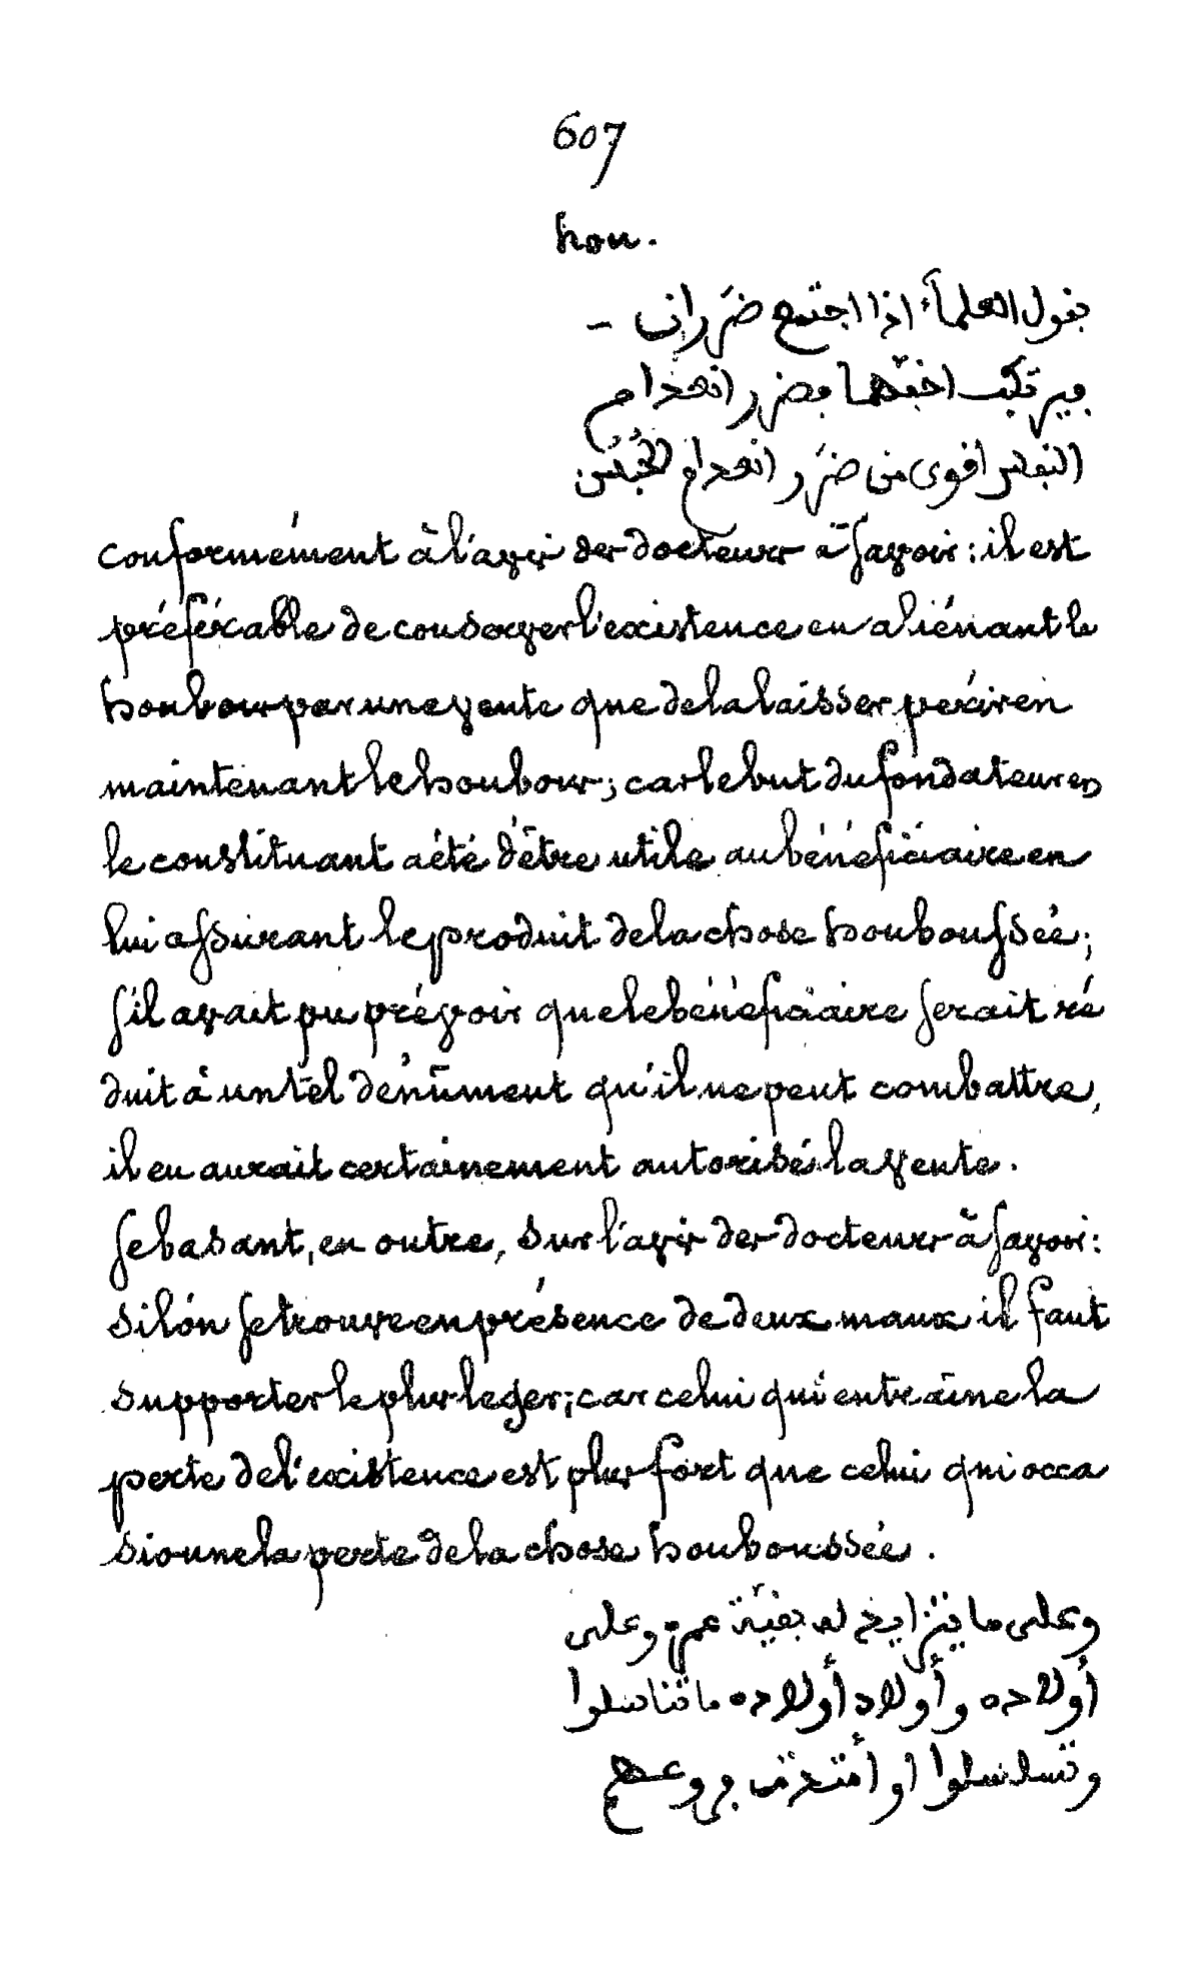 607
hou.
بقول العلماء اذا اجتمع ضرران –
فيرتكب اخفهما فضرر انعدام
النفس اقوى من ضرر انعدام الحبس
conformément à l'avis des docteurs à savoir : il est
préférable de conserver l'existence en aliénant le
houbous par une vente que de la laisser périr en
maintenant le houbous ; car le but du fondateur en
le constituant a été d'être utile au bénéficiaire en
lui assurant le produit de la chose houboussée ;
s'il avait pu prévoir que le bénéficiaire serait ré
duit à un tel dénûment qu'il ne peut combattre,
il en aurait certainement autorisé la vente.
Se basant, en outre, sur l'avis des docteurs à savoir :
si l'on se trouve en présence de deux maux il faut
supporter le plus leger ; car celui qui entraîne la
perte de l'existence est plus fort que celui qui occa
sionne la perte de la chose houboussée.
وعلى ما يتزايد له بقية عمره وعلى
أولاده وأولاد أولاده ما تناسلوا
وتسلسلوا او أمتدت فروعهم